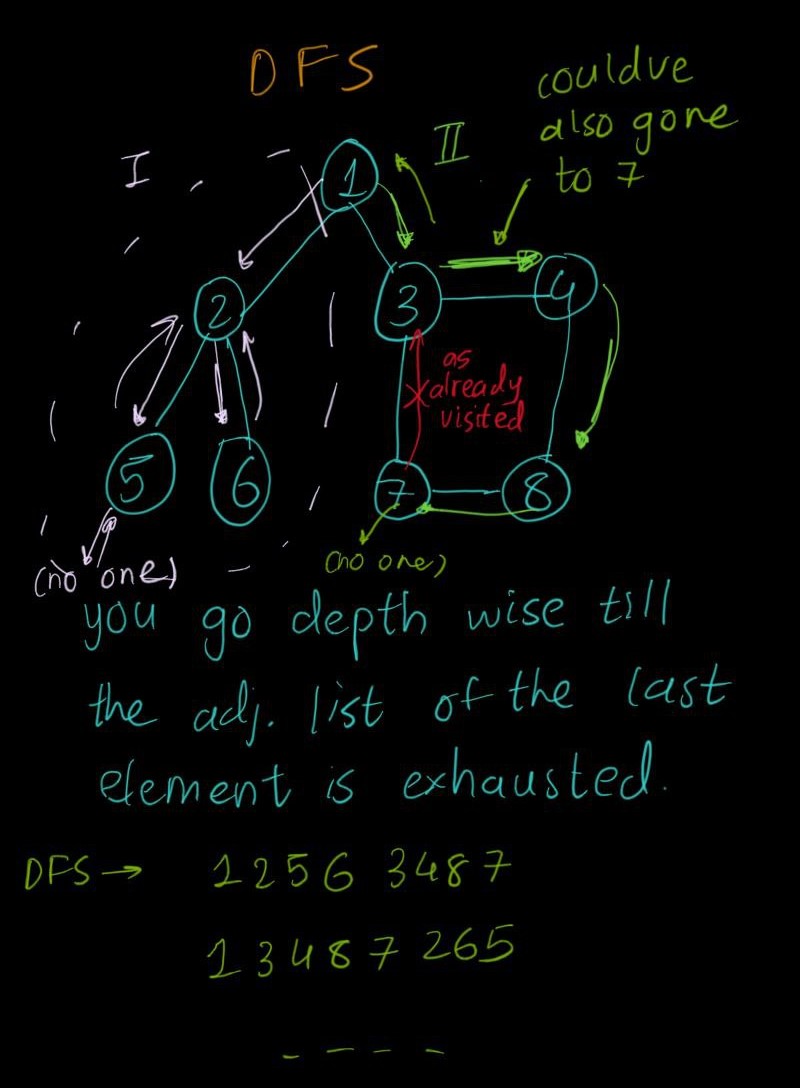 DFS
couldve
also gone
to 7
I
II
1
2
3
4
as
already
visited
5
6
7
8
(no one)
(no one)
you go depth wise till
the adj. list of the last
element is exhausted.
DFS → 1 2 5 6 3 4 8 7
1 3 4 8 7 2 6 5
_ _ _ _